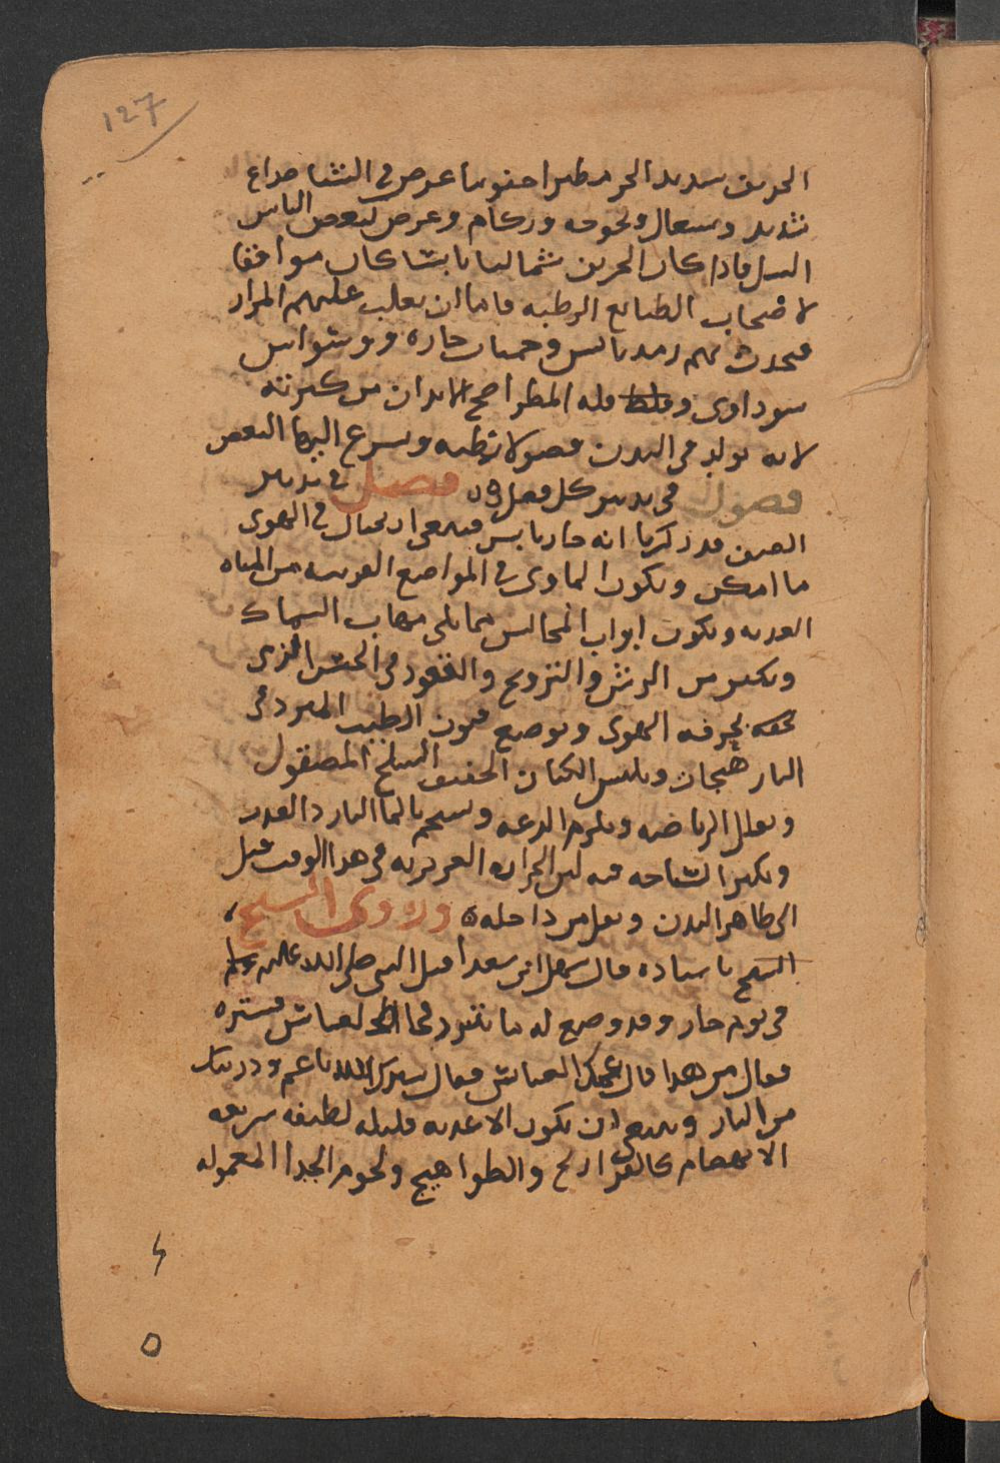 127
الخريف شديد الحر مطيرا جنوبيا عرض في الشتا صداع
شديد وسعال وبحوحه وزكام وعرض لبعض الناس
السل فاذا كان الخريف شماليا يابسا كان موافقا
لاصحاب الطبايع الرطبه فاما ان يغلب عليهم المرار
فيحدث بهم رمد يابس وحميات حاره ووسواس
سوداوى وقله المطر اصح للابدان من كثرته
لانه يولد في البدن فصولا رطبه ويسرع اليها العفن
فصول في تدبير كل فصل فصل في تدبير
الصيف قد ذكرنا انه حار يابس فينبغي ان يحتال في الهوى
ما امكن ويكون الماوى في المواضع القريبه من المياه
العذبه ويكون ابواب المجالس مما يلى مهاب الشمال
ويكثر من الرش والترويح والقعود في الخيش الذى
تخرقه الهوى ويوضع فيه الطيب المبرد في
البادهنجات ويلبس الكتان الخفيف المصقول
ويقلل الرياضه ويلزم الدعه ويستحم بالما البارد العذب
ويكثر السباحه فيه لان الحراره الغريزيه في هذا الوقت تميل
الى ظاهر البدن وتقل من داخله وروى الشيخ
باسناده قال سهل ابن سعد اقبل النبي صلى الله عليه وسلم
في يوم حار وقد وضع له ما يتبرد فجا العباس فستره
فقال من هذا قال عمك العباس فقال سترك الله يا عم وذريتك
من النار وينبغي ان يكون الاغديه قليله لطيفه سريعه
الانهضام كالفراريج والطواهيج ولحوم الجدا المعموله